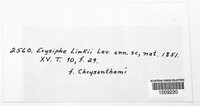 2560. Erysiphe Linkii Lev. ann. sc. nat. 1851.
XV. T. 10, f. 29.
f. Chrysanthemi
1009220